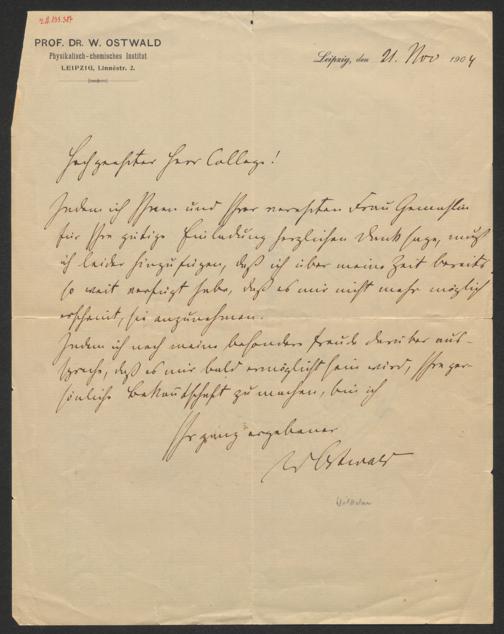 PROF. DR. W. OSTWALD
Physikalisch-chemisches Institut
LEIPZIG, Linnéstr. 2.
Leipzig, den 21. Nov 1904
Hochgeehrter Herr College!
Indem ich Ihnen und Ihrer verehrten Frau Gemahlin
für Ihre gütige Einladung herzlichen Dank sage, muß
ich leider hinzufügen, daß ich über meine Zeit bereits
so weit verfügt habe, daß es mir nicht mehr möglich
erscheint, sie anzunehmen.
Indem ich noch meine besondere Freude darüber aus-
spreche, daß es mir bald ermöglicht sein wird, Ihre per-
sönliche Bekanntschaft zu machen, bin ich
Ihr ganz ergebener
W Ostwald
Wilhelm